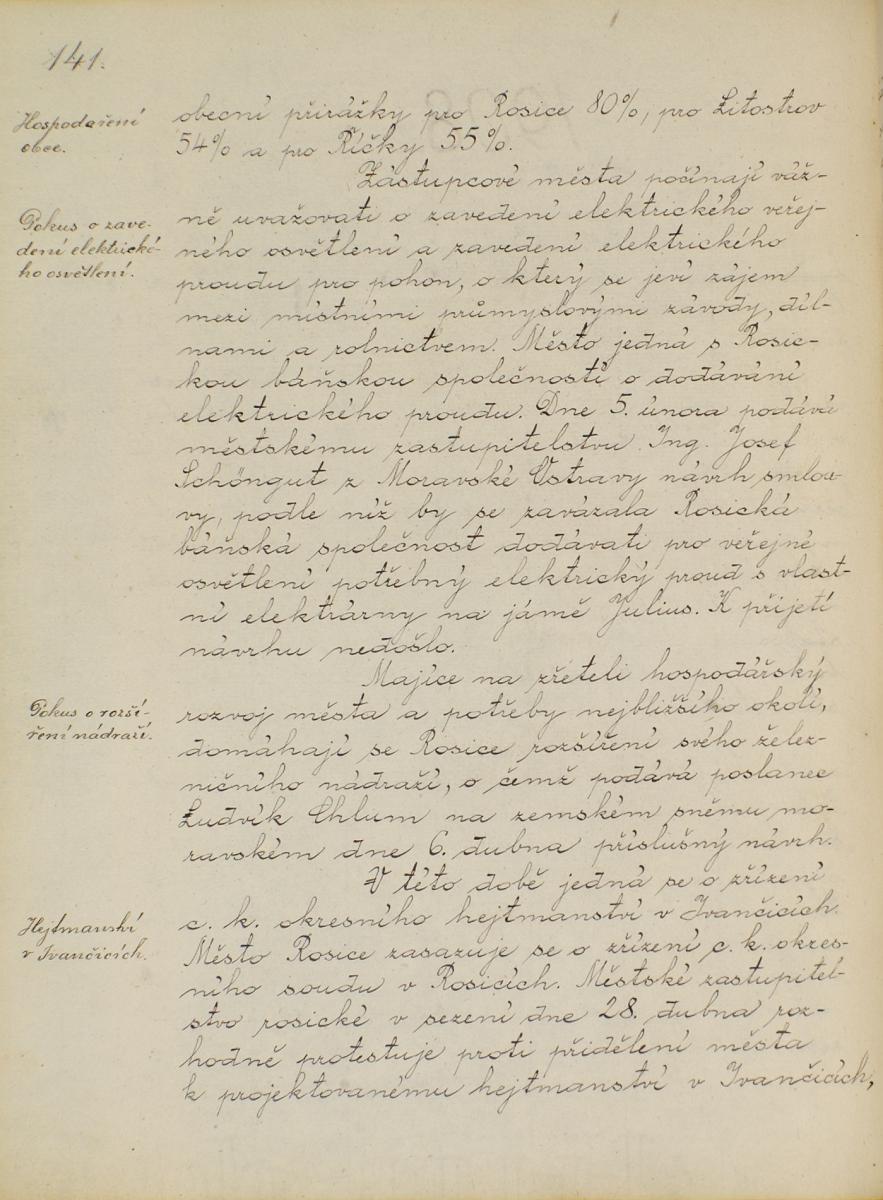 141.
Hospodaření
obce.
obecní přirážky pro Rosice 80%, pro Litostrov
54% a pro Říčky 55%.
Zástupcové města počínají váž-
Pokus o zave-
dení elektrické-
ho osvětlení.
ně uvažovati o zavedení elektrického veřej-
ného osvětlení a zavedení elektrického
proudu pro pohon, o který se jeví zájem
mezi místními průmyslovými závody, díl-
nami a rolnictvem. Město jedná s Rosic-
kou báňskou společností o dodávání
elektrického proudu. Dne 5. února podává
městskému zastupitelstvu Ing. Josef
Schöngut z Moravské Ostravy návrh smlou-
vy, podle níž by se zavázala Rosická
báňská společnost dodávati pro veřejné
osvětlení potřebný elektrický proud s vlast-
ní elektrárny na jámě Julius. K přijetí
návrhu nedošlo.
Majíce na zřeteli hospodářský
Pokus o rozší-
ření nádraží.
rozvoj města a potřeby nejbližšího okolí,
domáhají se Rosice rozšíření svého želez-
ničního nádraží, o čemž podává poslanec
Ludvík Chlum na zemském sněmu mo-
ravském dne 6. dubna příslušný návrh.
V této době jedná se o zřízení
Hejtmanství
v Ivančicích.
c. k. okresního hejtmanství v Ivančicích.
Město Rosice zasazuje se o zřízení c. k. okres-
ního soudu v Rosicích. Městské zastupitel-
stvo rosické v sezení dne 28. dubna roz-
hodně protestuje proti přidělení města
k projektovanému hejtmanství v Ivančicích,